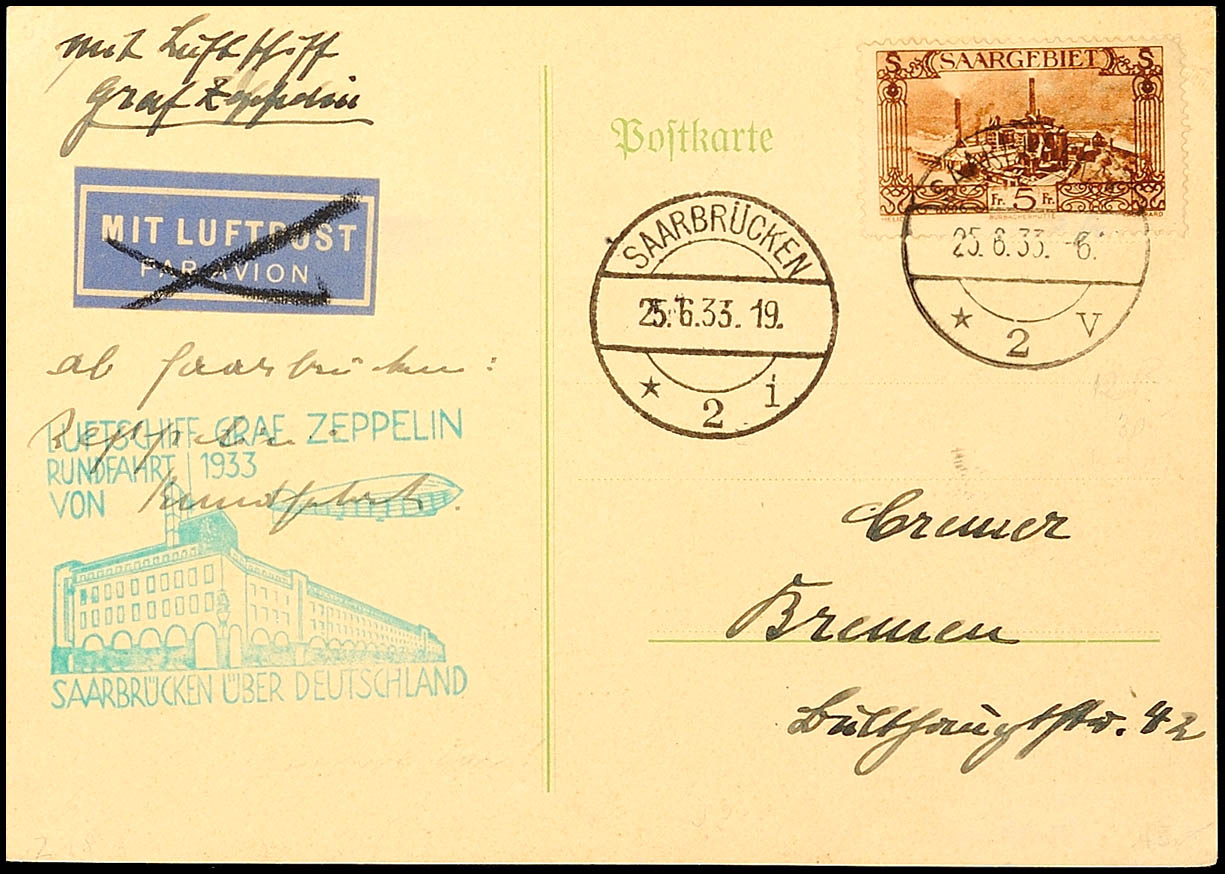 mit Luftschiff
Graf Zeppelin
MIT LUFTPOST
PAR AVION
ab Saarbrücken:
Zeppelin
Rundfahrt.
LUFTSCHIFF GRAF ZEPPELIN
RUNDFAHRT 1933
VON
SAARBRÜCKEN ÜBER DEUTSCHLAND
Postkarte
S SAARGEBIET S
Fr. 5 Fr.
BURBACHERHÜTTE
SAARBRÜCKEN
25.6.33. 19.
* 2 i
25.6.33. -6.
* 2 V
Cremer
Bremen
Bulthauptstr. 42